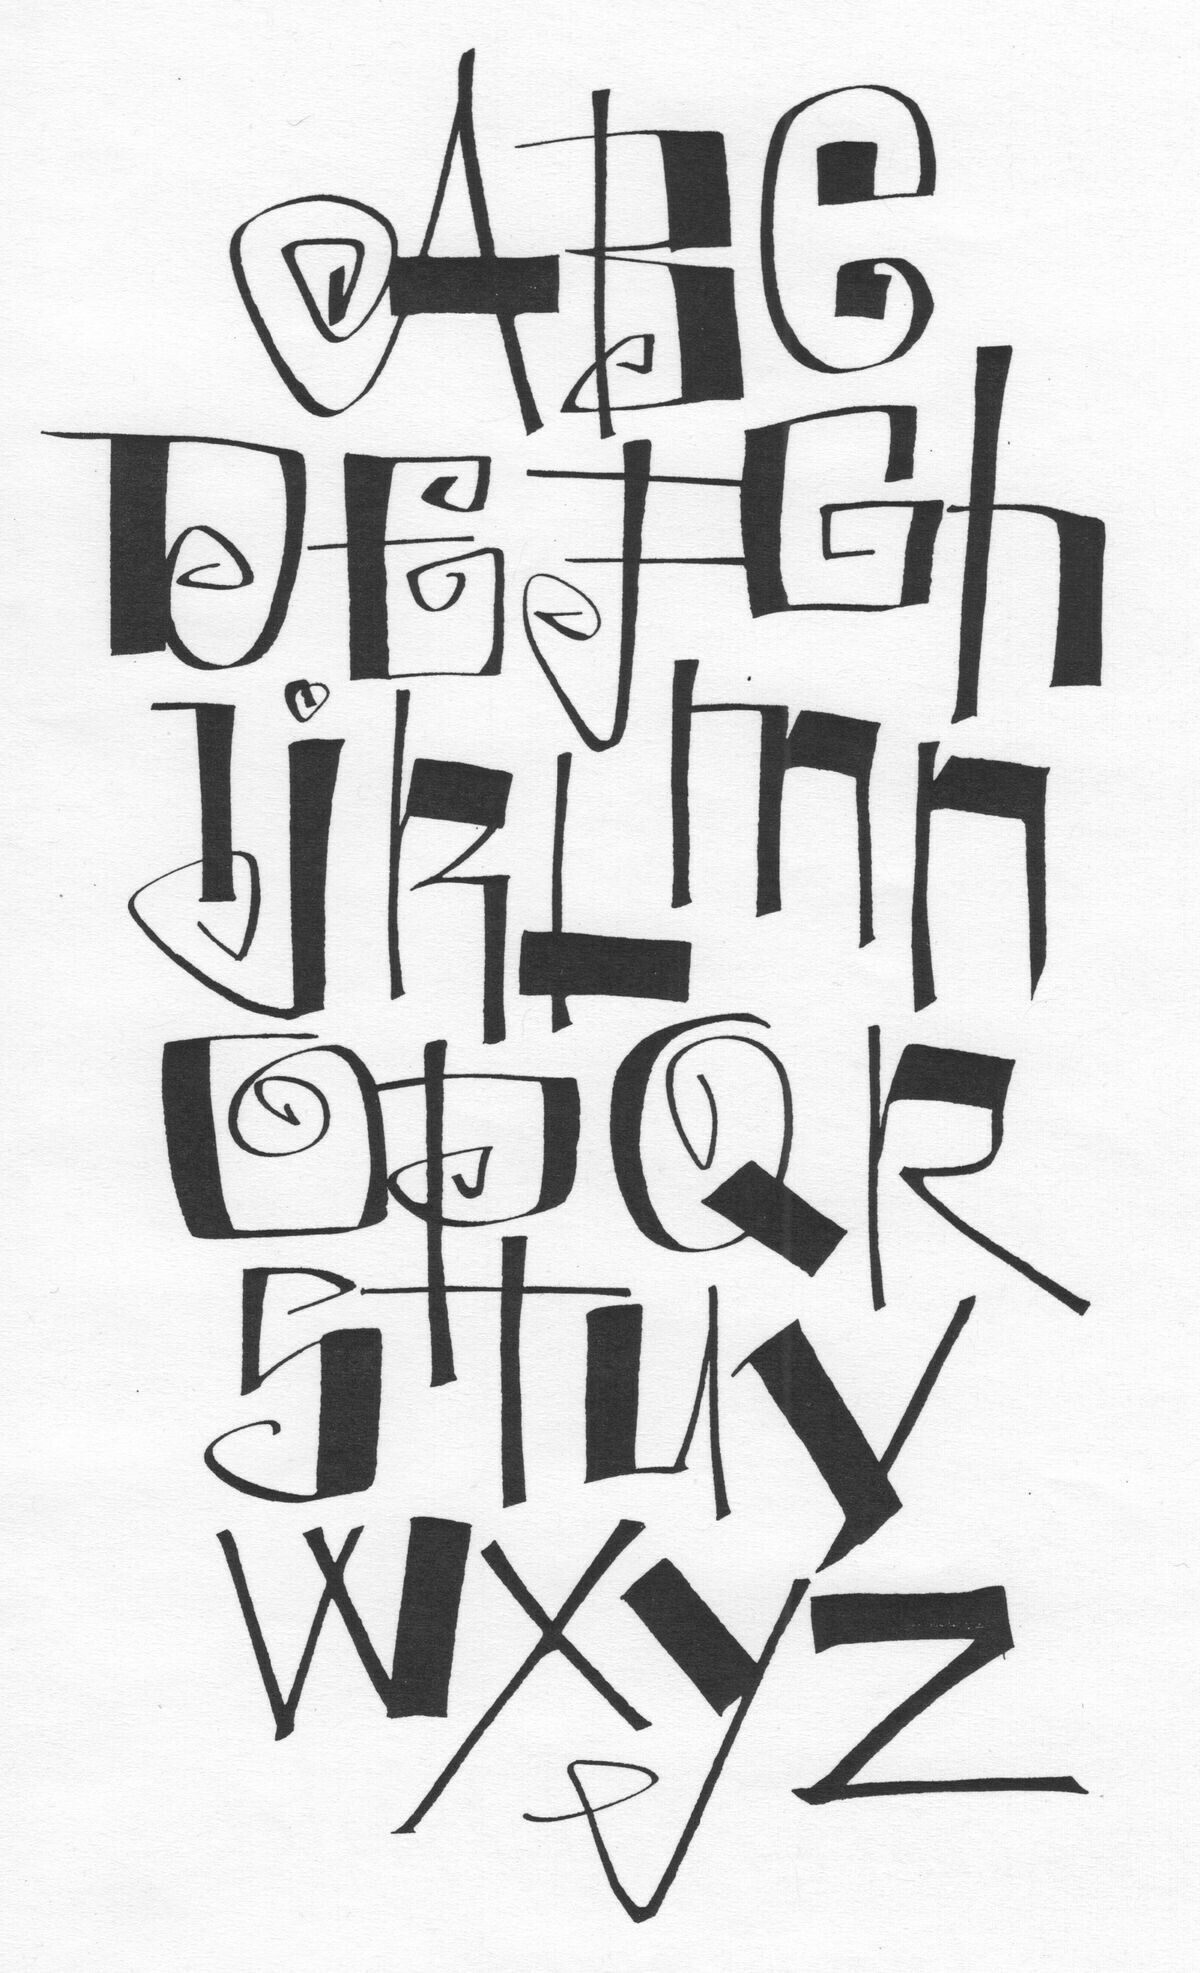 ABC
DEFGh
IJKLmn
OPQR
STUV
WXYZ